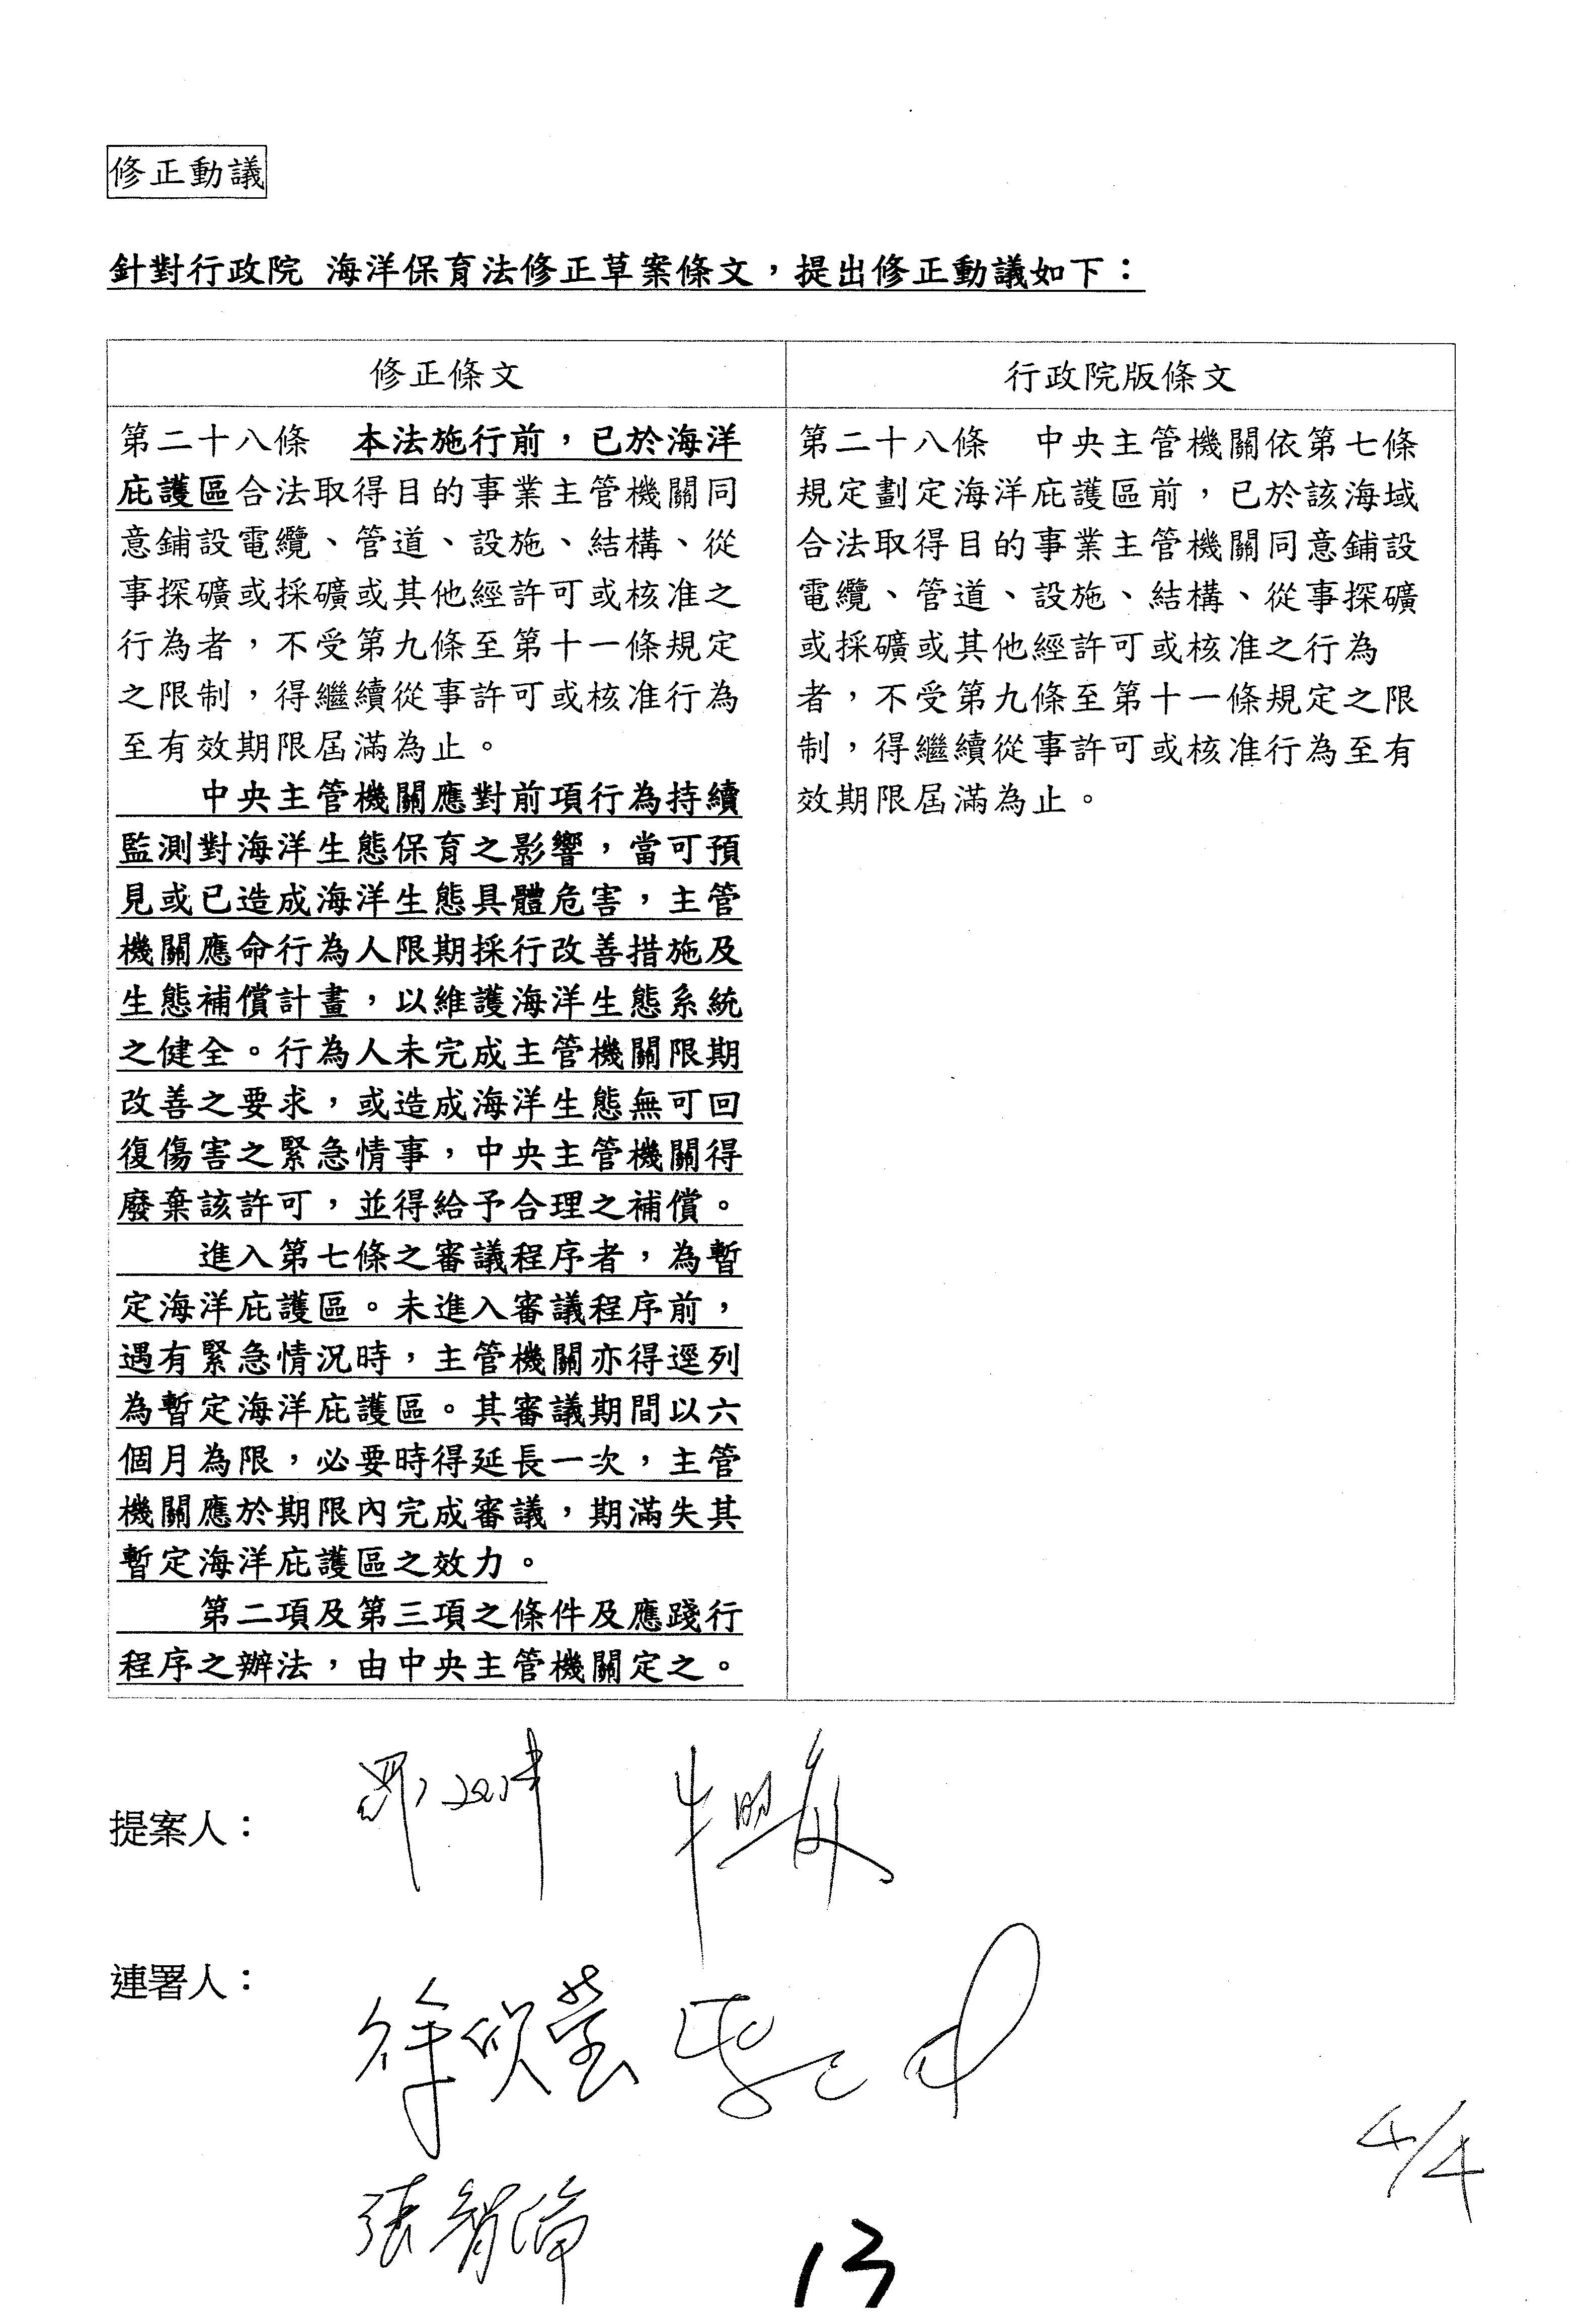 修正動議
針對行政院 海洋保育法修正草案條文，提出修正動議如下：
修正條文
第二十八條　本法施行前，已於海洋
庇護區合法取得目的事業主管機關同
意鋪設電纜、管道、設施、結構、從
事探礦或採礦或其他經許可或核准之
行為者，不受第九條至第十一條規定
之限制，得繼續從事許可或核准行為
至有效期限屆滿為止。
中央主管機關應對前項行為持續
監測對海洋生態保育之影響，當可預
見或已造成海洋生態具體危害，主管
機關應命行為人限期採行改善措施及
生態補償計畫，以維護海洋生態系統
之健全。行為人未完成主管機關限期
改善之要求，或造成海洋生態無可回
復傷害之緊急情事，中央主管機關得
廢棄該許可，並得給予合理之補償。
進入第七條之審議程序者，為暫
定海洋庇護區。未進入審議程序前，
遇有緊急情況時，主管機關亦得逕列
為暫定海洋庇護區。其審議期間以六
個月為限，必要時得延長一次，主管
機關應於期限內完成審議，期滿失其
暫定海洋庇護區之效力。
第二項及第三項之條件及應踐行
程序之辦法，由中央主管機關定之。
行政院版條文
第二十八條　中央主管機關依第七條
規定劃定海洋庇護區前，已於該海域
合法取得目的事業主管機關同意鋪設
電纜、管道、設施、結構、從事探礦
或採礦或其他經許可或核准之行為
者，不受第九條至第十一條規定之限
制，得繼續從事許可或核准行為至有
效期限屆滿為止。
提案人：
連署人：
徐欣瑩
張智倫
4/4
13